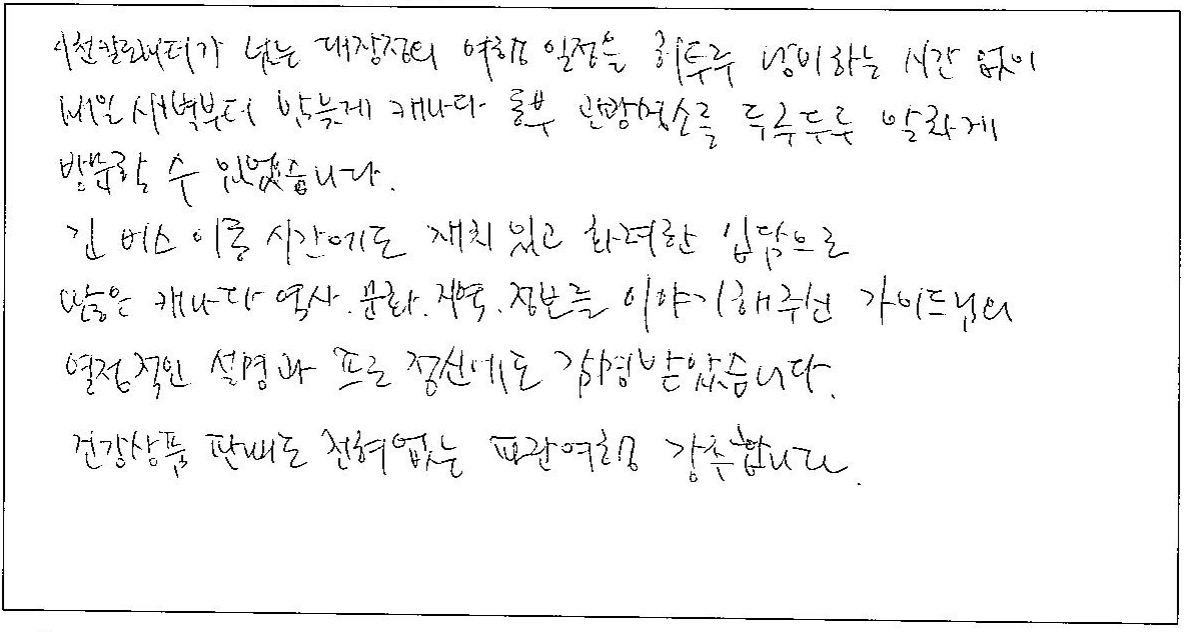 4천킬로미터가 넘는 대장정의 여행 일정을 허투루 낭비하는 시간 없이
매일 새벽부터 밤늦게 캐나다 동부 관광명소를 두루두루 알차게
방문할 수 있었습니다.
긴 버스 이동 시간에도 재치 있고 화려한 입담으로
많은 캐나다 역사.문화.지역.정보를 이야기해주신 가이드님의
열정적인 설명과 프로 정신에도 감명받았습니다.
건강상품 판매도 전혀없는 파란여행 강추합니다.